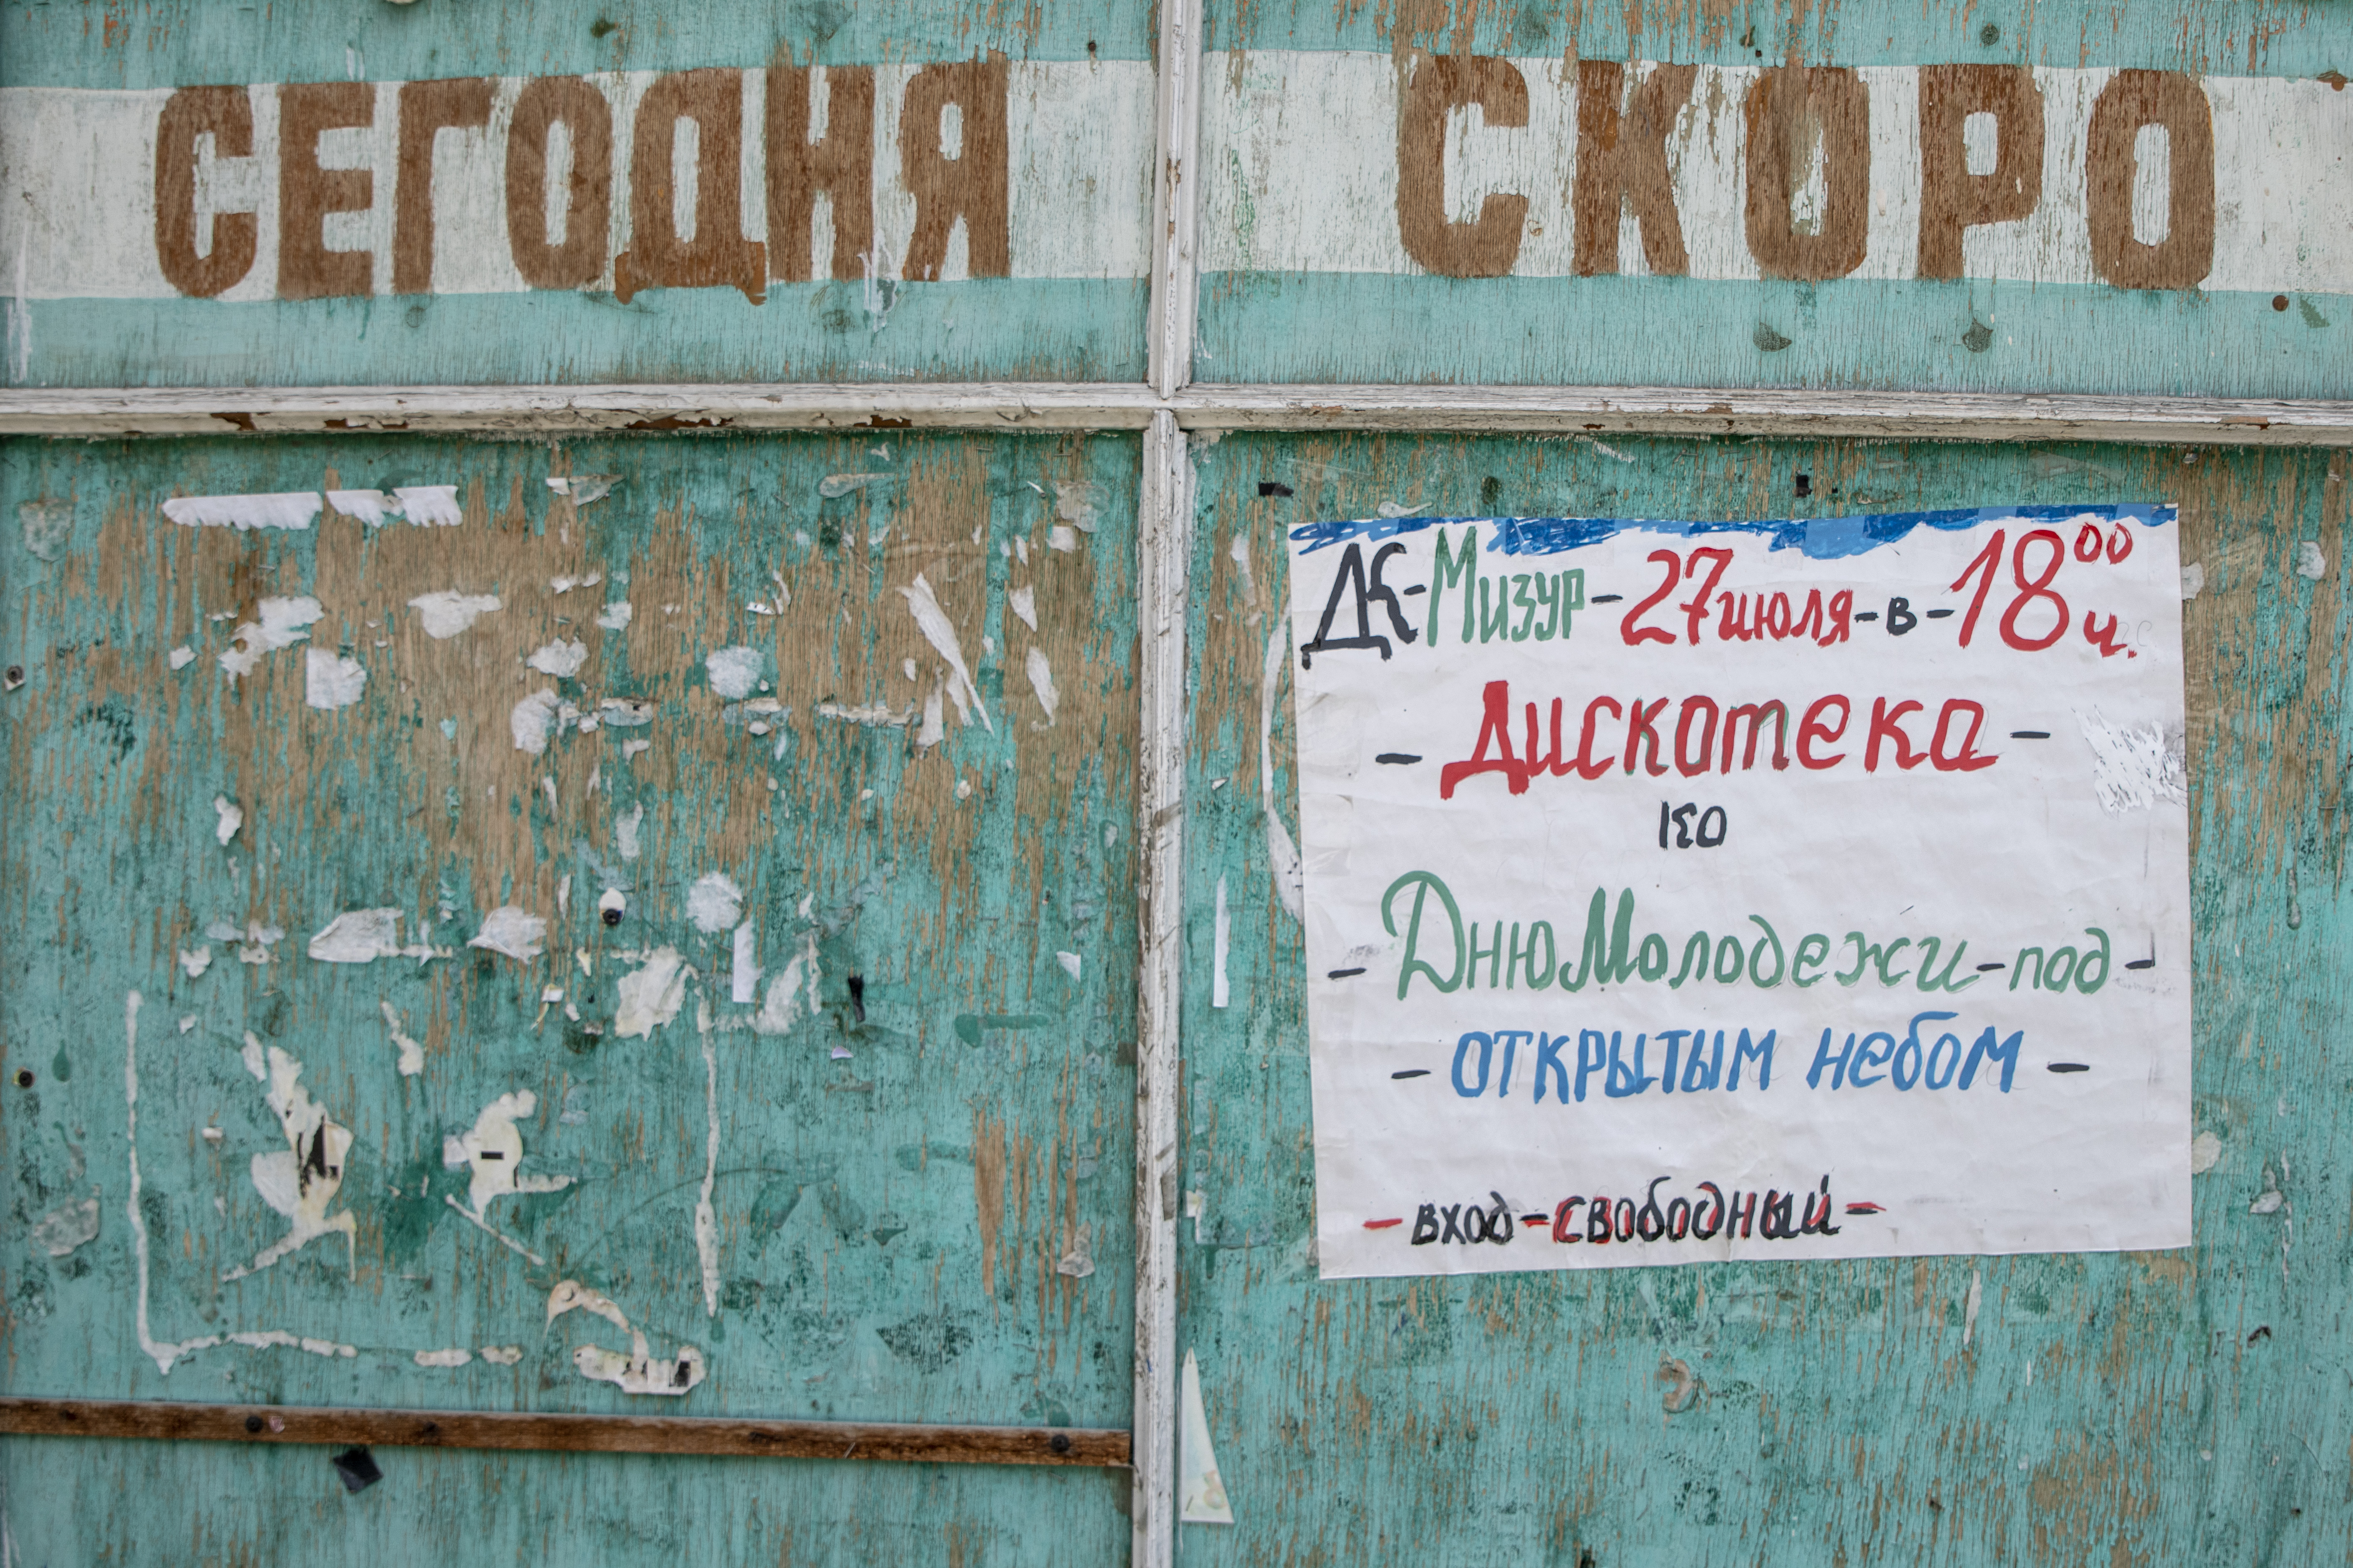 СЕГОДНЯ
СКОРО
ДК-Мизур-27июля-в-18⁰⁰ч.
-Дискотека-
ко
-Дню Молодежи-под-
-открытым небом-
-вход-свободный-